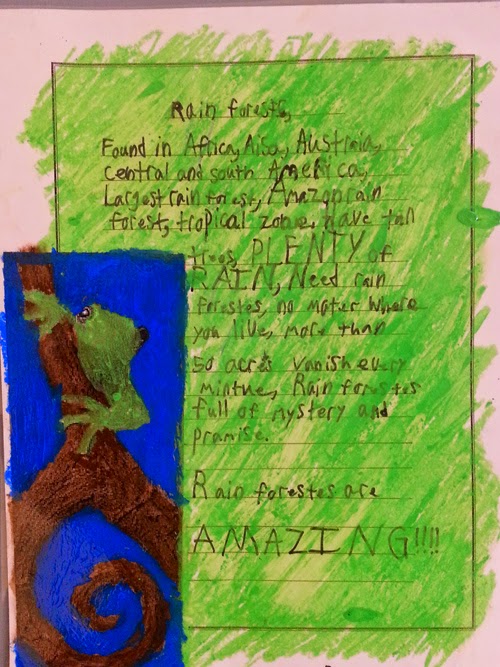 Rain forests,
Found in Africa, Aisa, Australia,
central and south America,
Largest rain forest, Amazon rain
forest, tropical zone, have tall
trees, PLENTY of
RAIN, Need rain
forestes, no mater where
you live, more than
50 acres vanish every
mintue, Rain forestes
full of mystery and
pramise.
Rain forestes are
AMAZING!!!!